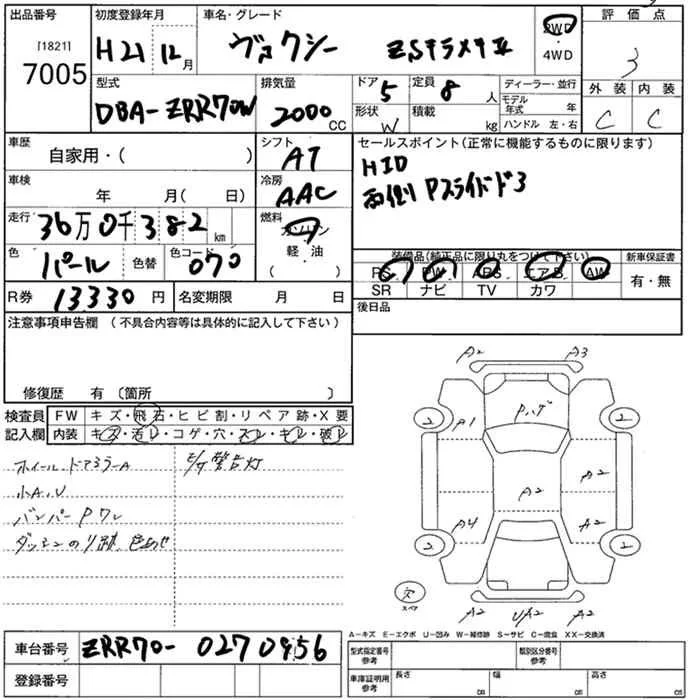 出品番号 初度登録年月 車名・グレード 2WD 評価点
[1821] H21 12月 ヴォクシー ZSキラメキⅡ 4WD 3
7005
型式 排気量 ドア 5 定員 8人 ディーラー・並行 外装 内装
DBA-ZRR70W 2000CC 形状 W 積載 kg モデル年式 年 C C
ハンドル 左・右
車歴 自家用・( ) シフト AT セールスポイント(正常に機能するものに限ります)
HID
両側Pスライドドア
車検 年 月( 日) 冷房 AAC
走行 36万0千382km 燃料 ガソリン
軽・油
( ・ )
色 パール 色替 色コード 070 装備品(純正品に限り丸をつけて下さい) 新車保証書
PS PW ABS エアB AW 有・無
SR ナビ TV カワ
R券 13330円 名変期限 月 日 後日品
注意事項申告欄 (不具合内容等は具体的に記入して下さい)
修復歴 有 〔箇所 〕
検査員 FW キズ・飛石・ヒビ割・リペア跡・X要
記入欄 内装 キズ・汚レ・コゲ・穴・スレ・キレ・破レ
ホイール、ドアミラーA E/g警告灯
小A、U
バンパーPワレ
ダッシュのり跡、色あせ
A2 A3
2 A1 Pハゲ 2
A2 A2
2 A4 A2 2
欠
スペア
A2 UA2 A2
A-キズ E-エクボ U-凹み W-補修跡 S-サビ C-腐食 XX-交換済
車台番号 ZRR70-0270456
登録番号
型式指定番号 参考 類別区分番号 参考
車庫証明用 参考 長さ cm 幅 cm 高さ cm